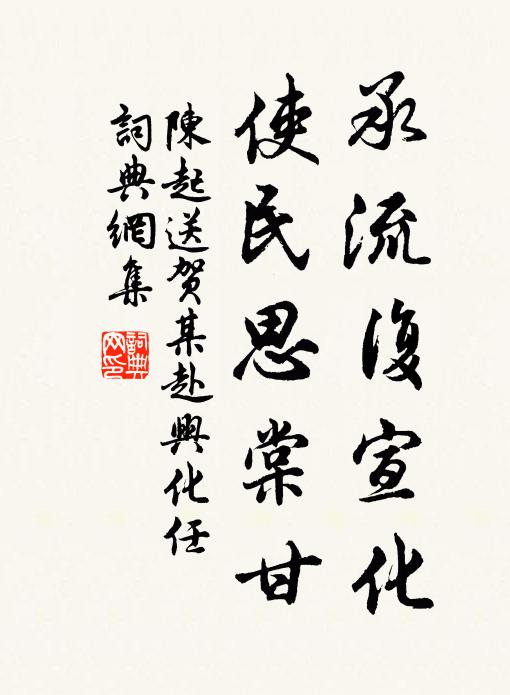 承流復宣化
使民思棠甘
陳起送贺某赴興化任
詞典網集
詞典
网印